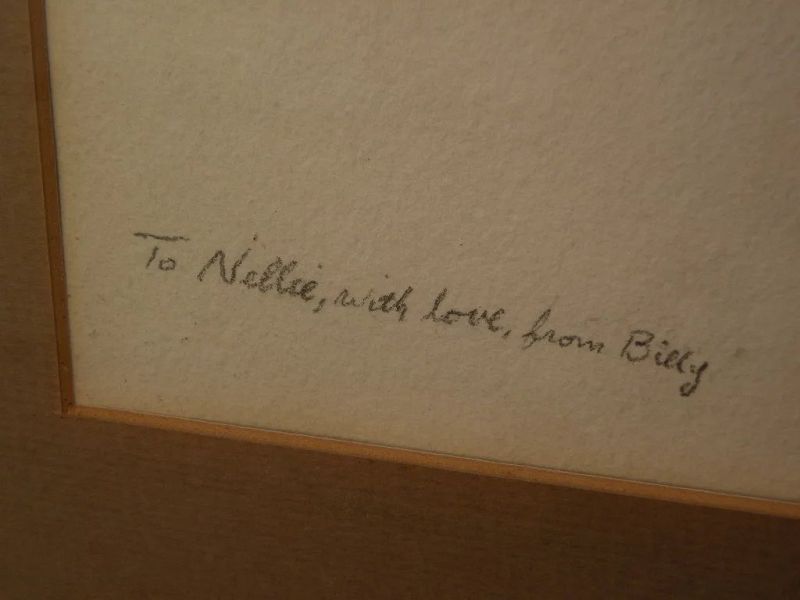 To Nellie, with love, from Billy